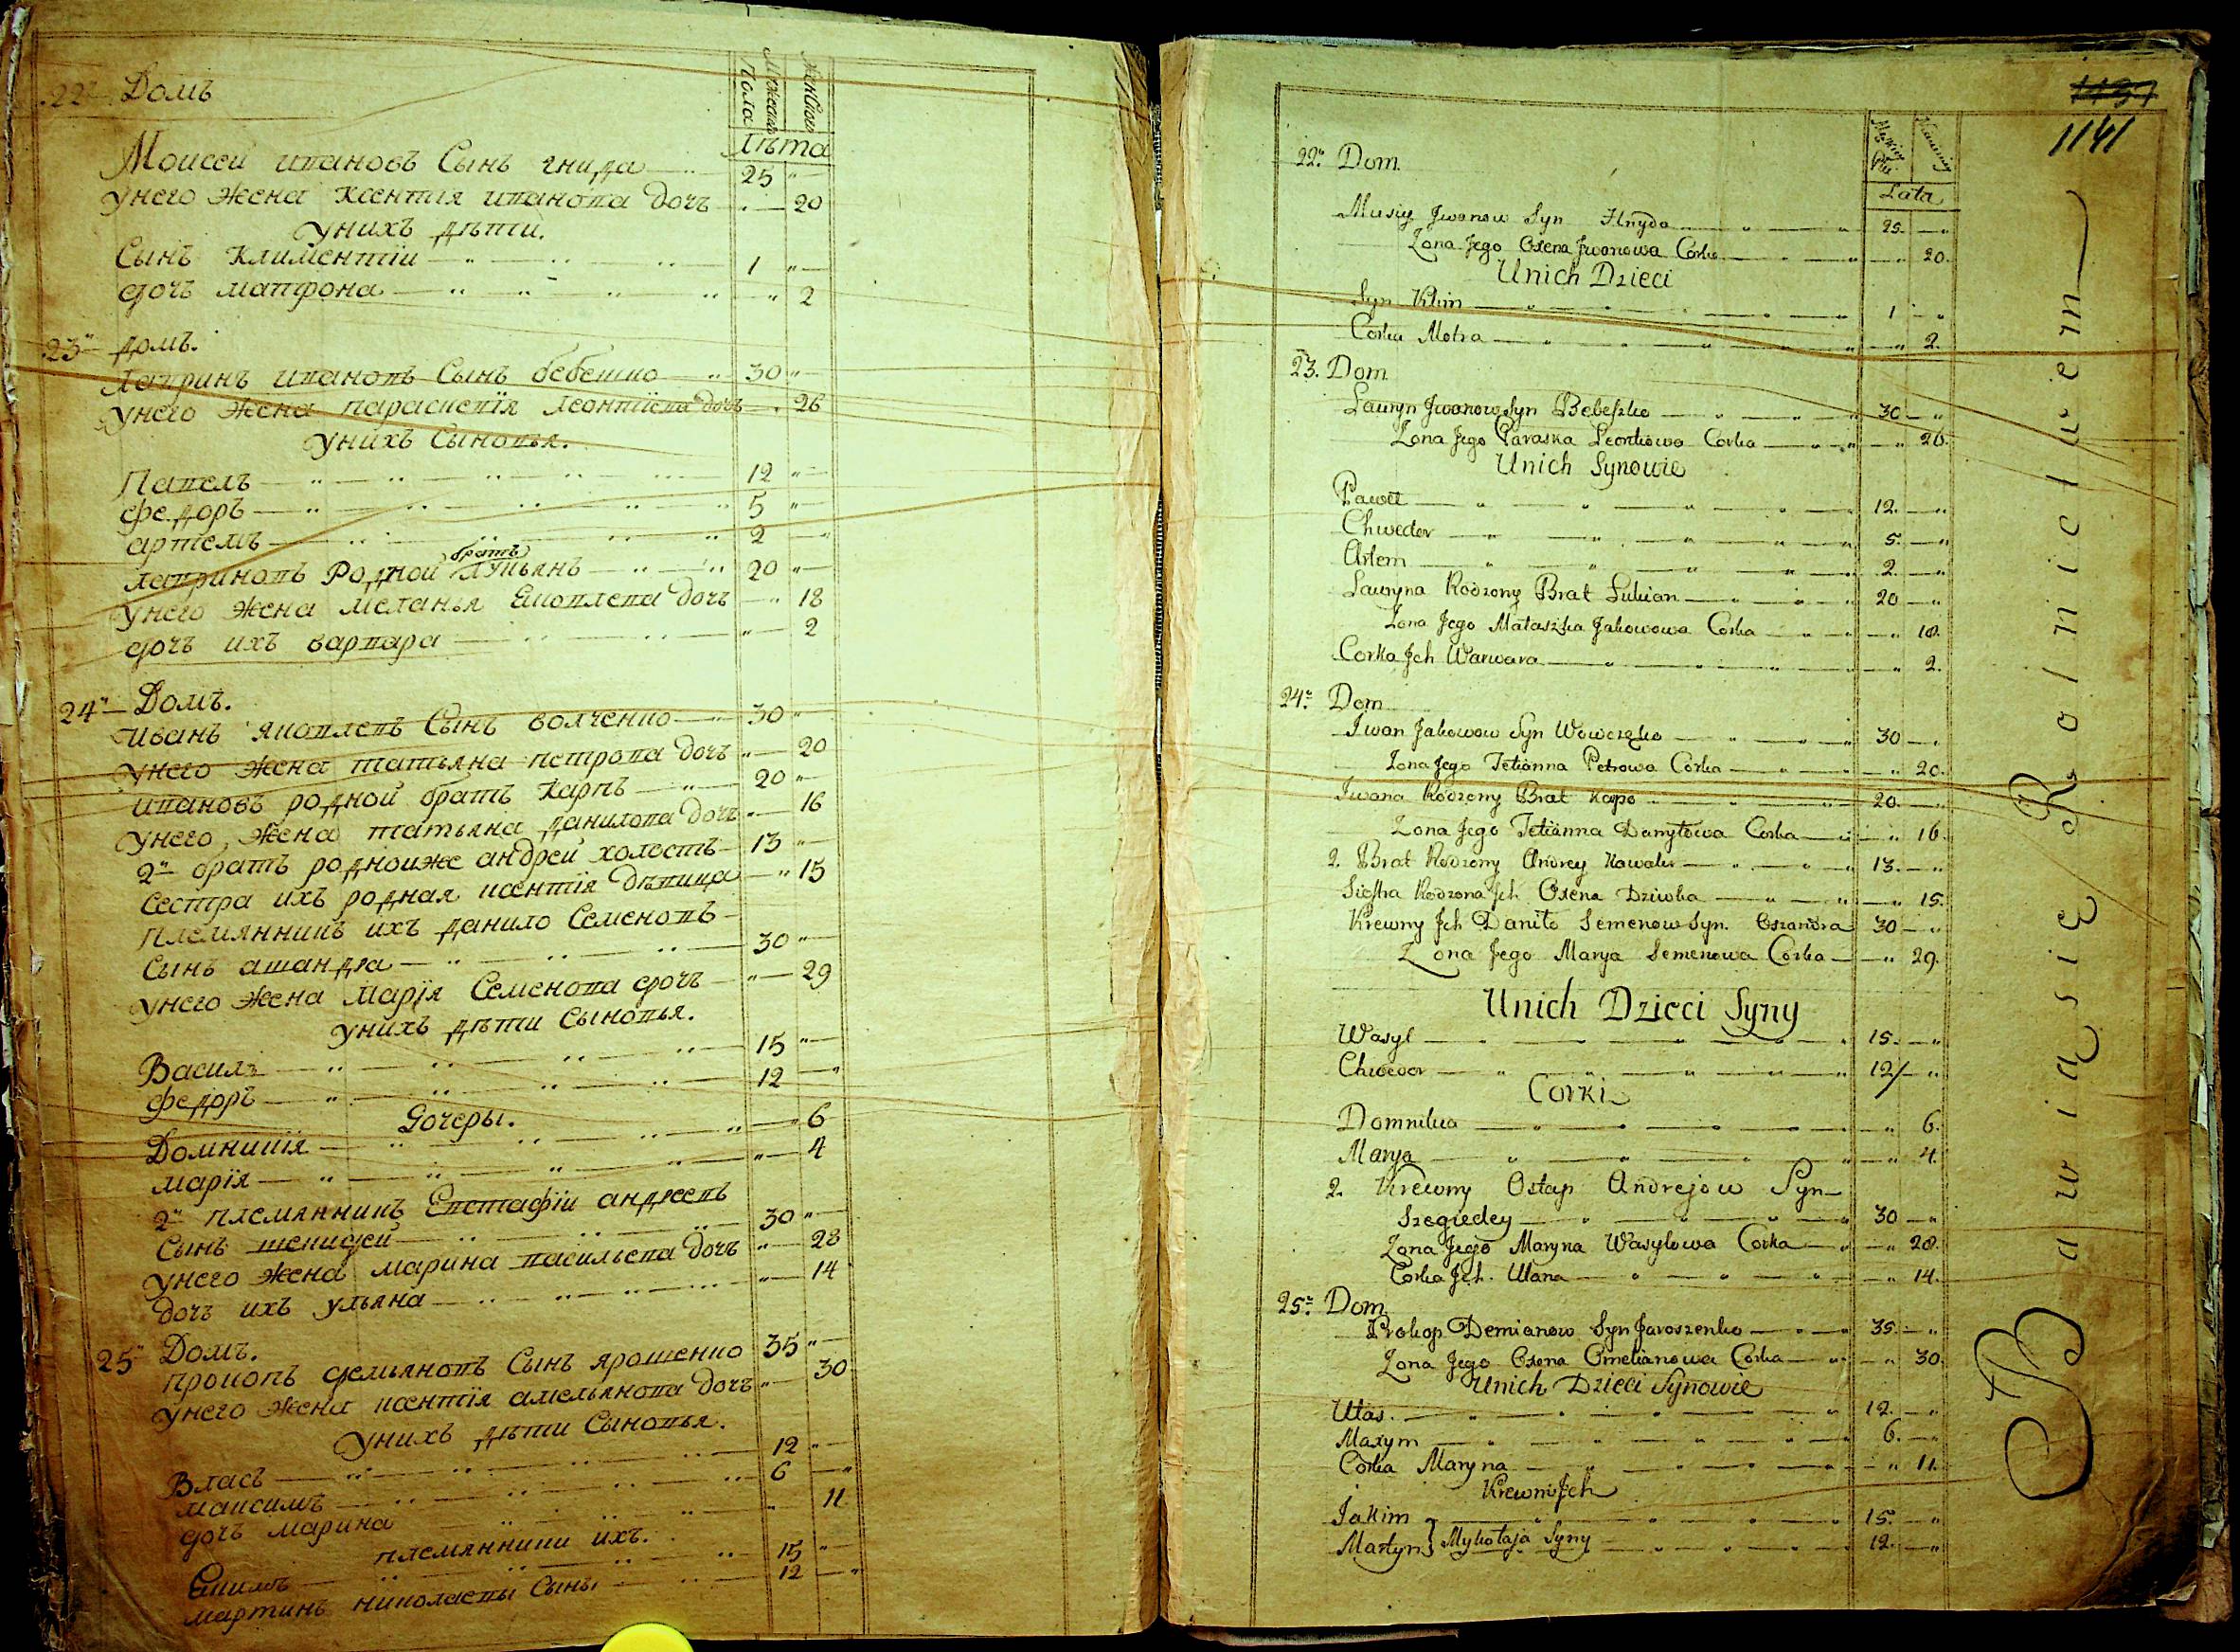 22 Домъ
Мужеска
Пола
Женска
Лѣта
Моисей ивановъ Сынъ гнида 25
унего жена Ксентія иванова дочъ 20
унихъ дѣти.
Сынъ Климентіи 1
дочъ матрона 2
23 домъ.
лавринъ ивановъ Сынъ бебешко 30
унего жена параскевія леонтіева дочъ 26
унихъ Сыновья.
Павелъ 12
федоръ 5
артемъ 2
лавриновъ Родной братъ лукьянъ 20
унего жена меланья Яковлева дочъ 18
дочъ ихъ варвара 2
24 Домъ.
иванъ яковлевъ Сынъ волченко 30
унего жена татьяна петрова дочъ 20
ивановъ родной братъ карпъ 20
унего жена татьяна данилова дочъ 16
2 братъ роднойже андрей холостъ 13
Сестра ихъ родная ксентія дѣвица 15
племянникъ ихъ данило Семеновъ
Сынъ ашандра 30
унего жена Марія Семенова дочъ 29
унихъ дѣти Сыновья.
Василь 15
федоръ 12
дочеры.
Домникія 6
марія 4
2 племянникъ Евстафіи андреевъ
Сынъ 30
унего жена марина васильева дочъ 28
дочъ ихъ ульяна 14
25 Домъ.
прокопъ демьяновъ Сынъ ярошенко 35
унего жена ксентія амельянова дочъ 30
унихъ дѣти Сыновья.
Власъ 12
максимъ 6
дочъ марина 11
племянники ихъ.
Екимъ 15
мартинъ николаевы Сыны 12
1141
22. Dom
Lata
Musiy Jwanow Syn Hnyda 25.
Zona Jego Oxena Jwanowa Corka 20.
Unich Dzieci
Syn Klim 1
Corka Motra 2.
23. Dom
Lauryn Jwanow Syn Bebeszko 30
Zona Jego Paraska Leonkowa Corka 26.
Unich Synowie
Paweł 12.
Chwedor 5.
Artem 2.
Lauryna Rodzony Brat Lukian 20
Zona Jego Małaszka Jakowowa Corka 18.
Corka Jch Warwara 2.
24. Dom
Iwan Jakowow Syn Wowczko 30
Zona Jego Tetianna Petrowa Corka 20.
Iwana Rodzony Brat Karpo 20.
Zona Jego Tetianna Danyłowa Corka 16.
2. Brat Rodzony Andrey Kawaler 13.
Siostra Rodzona Jch Oxena Dziwka 15.
Krewny Jch Daniło Semenow Syn Oszandra 30
Zona Jego Marya Semenowa Corka 29.
Unich Dzieci Syny
Wasyl 15.
Chwedor 12
Corki
Domnika 6.
Marya 4.
2. Krewny Ostap Andrejow Syn
Szegiedey 30
Zona Jego Maryna Wasylowa Corka 28.
Corka Jch. Ulana 14.
25. Dom
Prokop Demianow Syn Jaroszenko 35.
Zona Jego Oxena Omelianowa Corka 30.
Unich Dzieci Synowie
Ułas. 12.
Maxym 6.
Corka Maryna 11.
Krewni Jch
Jakim 15.
Martyn } Mykołaja Syny 12.
Bawia Sie Rolnictwem